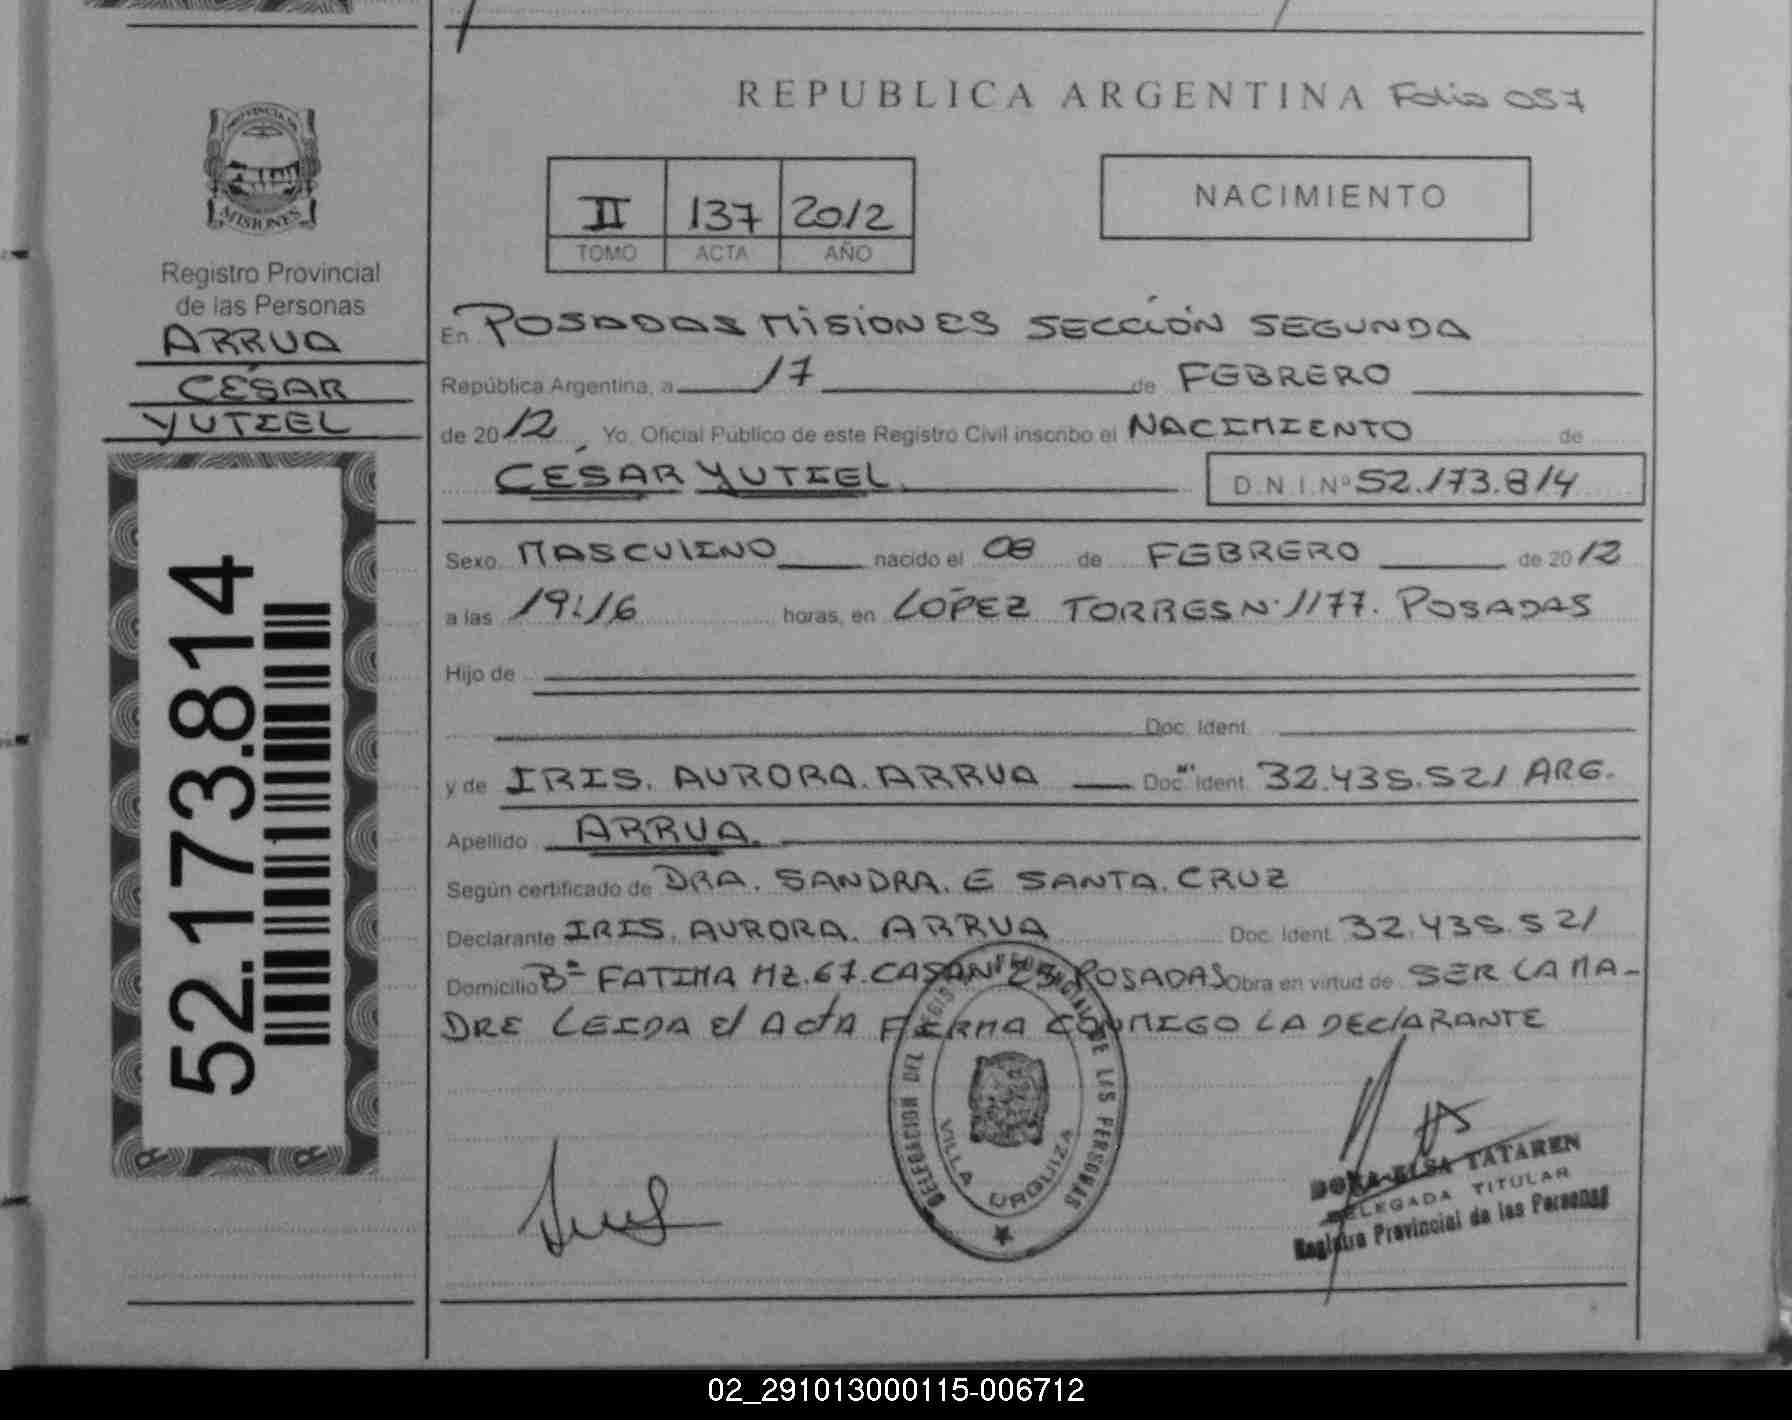 REPUBLICA ARGENTINA Folio 057
PROVINCIA DE
MISIONES
Registro Provincial
de las Personas
ARRUA
CÉSAR
YUTIEL
52.173.814
II 137 2012
TOMO ACTA AÑO
NACIMIENTO
En POSADAS MISIONES SECCIÓN SEGUNDA
República Argentina, a 17 de FEBRERO
de 2012, Yo, Oficial Público de este Registro Civil inscribo el NACIMIENTO de
CÉSAR YUTIEL. D.N.I.Nº 52.173.814
Sexo MASCULINO nacido el 08 de FEBRERO de 2012
a las 19:16 horas, en LOPEZ TORRES N° 1177. POSADAS
Hijo de
Doc. Ident.
y de IRIS. AURORA. ARRUA Doc. Ident. 32.435.521 ARG.
Apellido ARRUA.
Según certificado de DRA. SANDRA. E SANTA. CRUZ
Declarante IRIS. AURORA. ARRUA Doc. Ident. 32.435.521
Domicilio Bº FATIMA MZ.67.CASA Nº 25 POSADAS Obra en virtud de SER LA MA-
DRE LEIDA el ActA FIRMA CONMIGO LA DEClARANTE
DELEGACION DEL REGISTRO PROVINCIAL DE LAS PERSONAS
VILLA URQUIZA
DORA ELSA TATAREN
DELEGADA TITULAR
Registro Provincial de las Personas
02_291013000115-006712